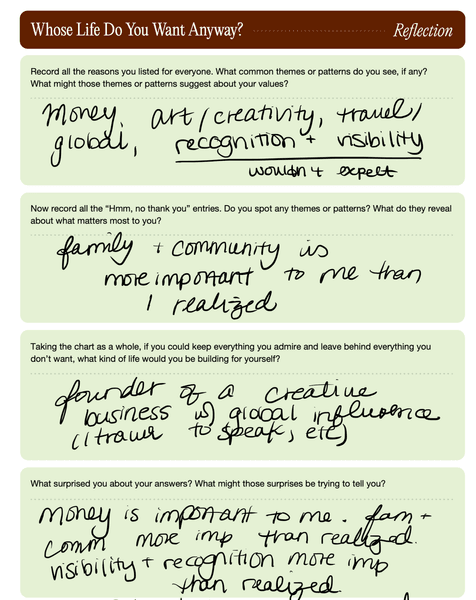 Whose Life Do You Want Anyway? Reflection
Record all the reasons you listed for everyone. What common themes or patterns do you see, if any?
What might those themes or patterns suggest about your values?
Money, art/creativity, travel/
global, recognition + visibility
wouldn't expect
Now record all the “Hmm, no thank you” entries. Do you spot any themes or patterns? What do they reveal
about what matters most to you?
family + community is
more important to me than
I realized
Taking the chart as a whole, if you could keep everything you admire and leave behind everything you
don’t want, what kind of life would you be building for yourself?
founder of a creative
business w/ global influence
(travel to speak, etc)
What surprised you about your answers? What might those surprises be trying to tell you?
Money is important to me. fam +
comm more imp than realized.
visibility + recognition more imp
than realized.